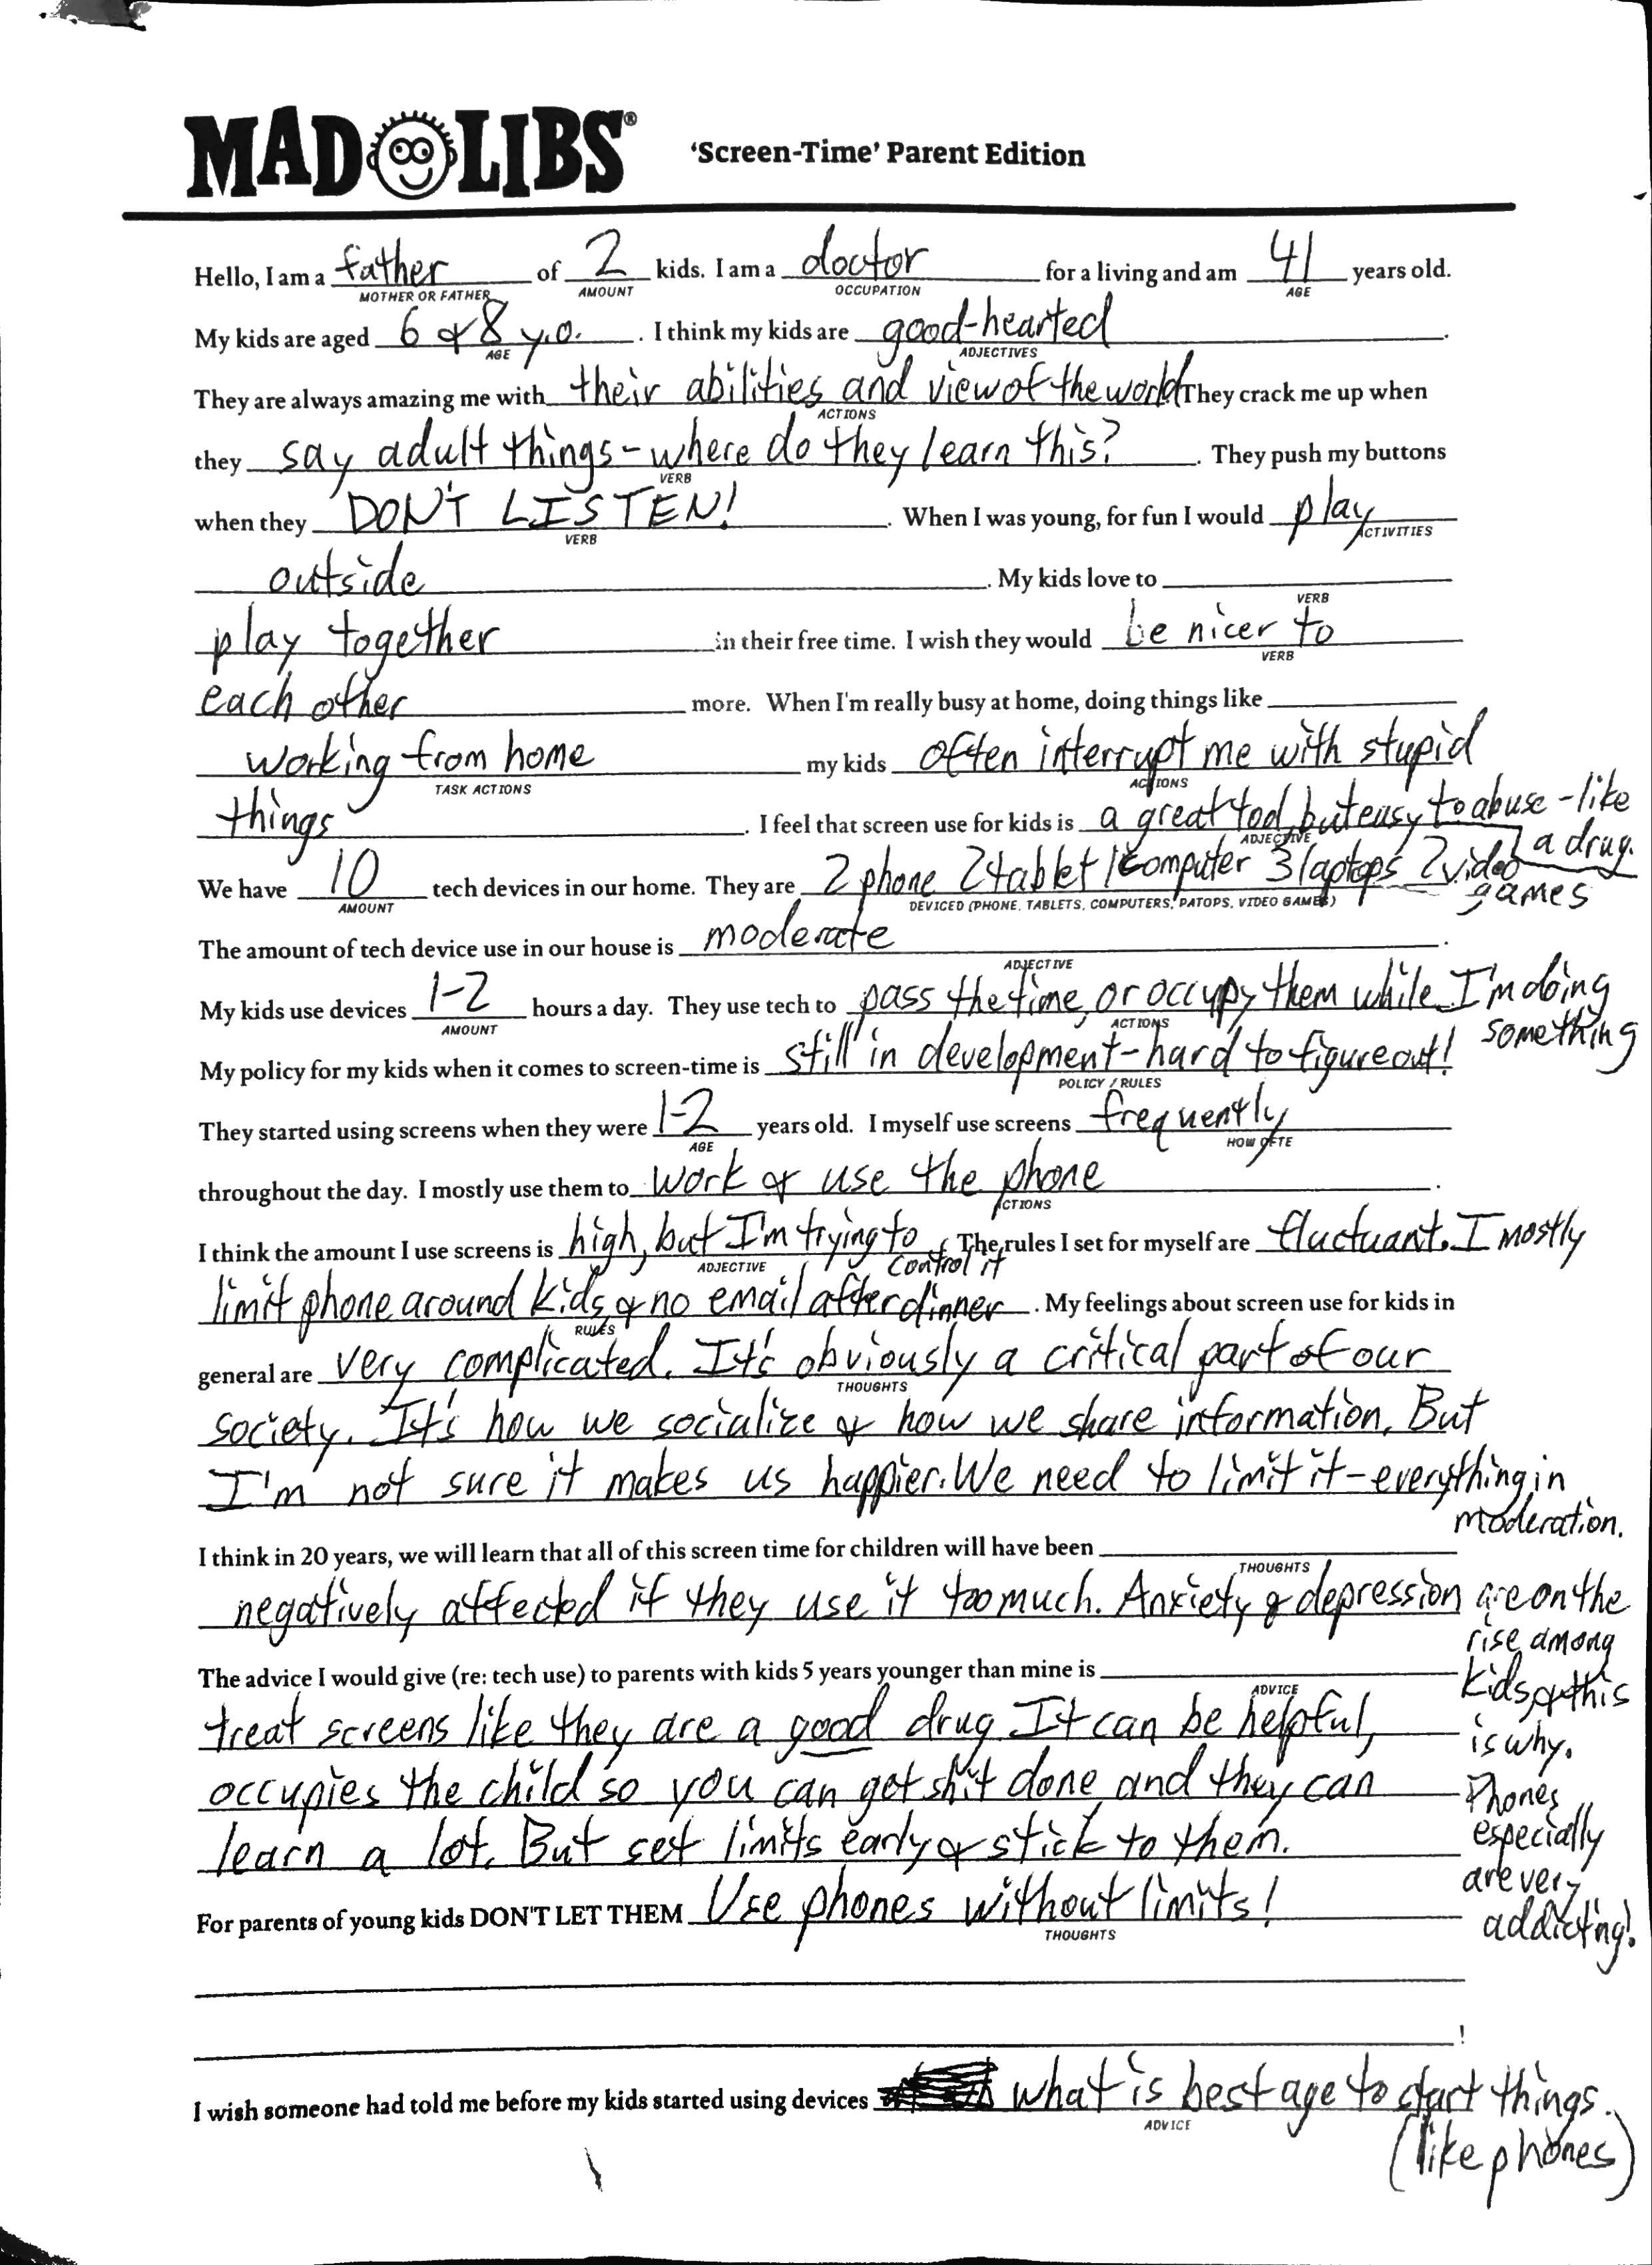 MAD LIBS® 'Screen-Time' Parent Edition
Hello, I am a father of 2 kids. I am a doctor for a living and am 41 years old.
MOTHER OR FATHER AMOUNT OCCUPATION AGE
My kids are aged 6 & 8 y.o. . I think my kids are good-hearted .
AGE ADJECTIVES
They are always amazing me with their abilities and view of the world They crack me up when
ACTIONS
they say adult things - where do they learn this? . They push my buttons
VERB
when they DON'T LISTEN! . When I was young, for fun I would play
VERB ACTIVITIES
outside . My kids love to
VERB
play together in their free time. I wish they would be nicer to
VERB
each other more. When I'm really busy at home, doing things like
working from home my kids often interrupt me with stupid
TASK ACTIONS ACTIONS
things . I feel that screen use for kids is a great tool, but easy to abuse - like
ADJECTIVE a drug.
We have 10 tech devices in our home. They are 2 phone 2 tablet 1 computer 3 laptops 2 video
AMOUNT DEVICED (PHONE, TABLETS, COMPUTERS, PATOPS, VIDEO GAMES) games
The amount of tech device use in our house is moderate .
ADJECTIVE
My kids use devices 1-2 hours a day. They use tech to pass the time, or occupy them while I'm doing
AMOUNT ACTIONS something
My policy for my kids when it comes to screen-time is still in development - hard to figure out!
POLICY / RULES
They started using screens when they were 1-2 years old. I myself use screens frequently
AGE HOW OFTE
throughout the day. I mostly use them to work & use the phone .
ACTIONS
I think the amount I use screens is high, but I'm trying to . The rules I set for myself are fluctuant. I mostly
ADJECTIVE control it
limit phone around kids & no email after dinner . My feelings about screen use for kids in
RULES
general are very complicated. It's obviously a critical part of our
THOUGHTS
society. It's how we socialize & how we share information. But
I'm not sure it makes us happier. We need to limit it - everything in
moderation.
I think in 20 years, we will learn that all of this screen time for children will have been
THOUGHTS
negatively affected if they use it too much. Anxiety & depression are on the
rise among
kids & this
is why.
Phones
especially
are very
addicting!
The advice I would give (re: tech use) to parents with kids 5 years younger than mine is
ADVICE
treat screens like they are a good drug. It can be helpful,
occupies the child so you can get shit done and they can
learn a lot. But set limits early & stick to them.
For parents of young kids DON'T LET THEM Use phones without limits!
THOUGHTS
!
I wish someone had told me before my kids started using devices what is best age to start things.
ADVICE
(like phones)